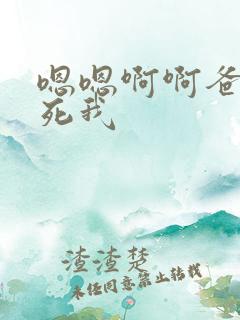 嗯嗯啊啊爸
死我
渣渣楚
未经同意禁止转载